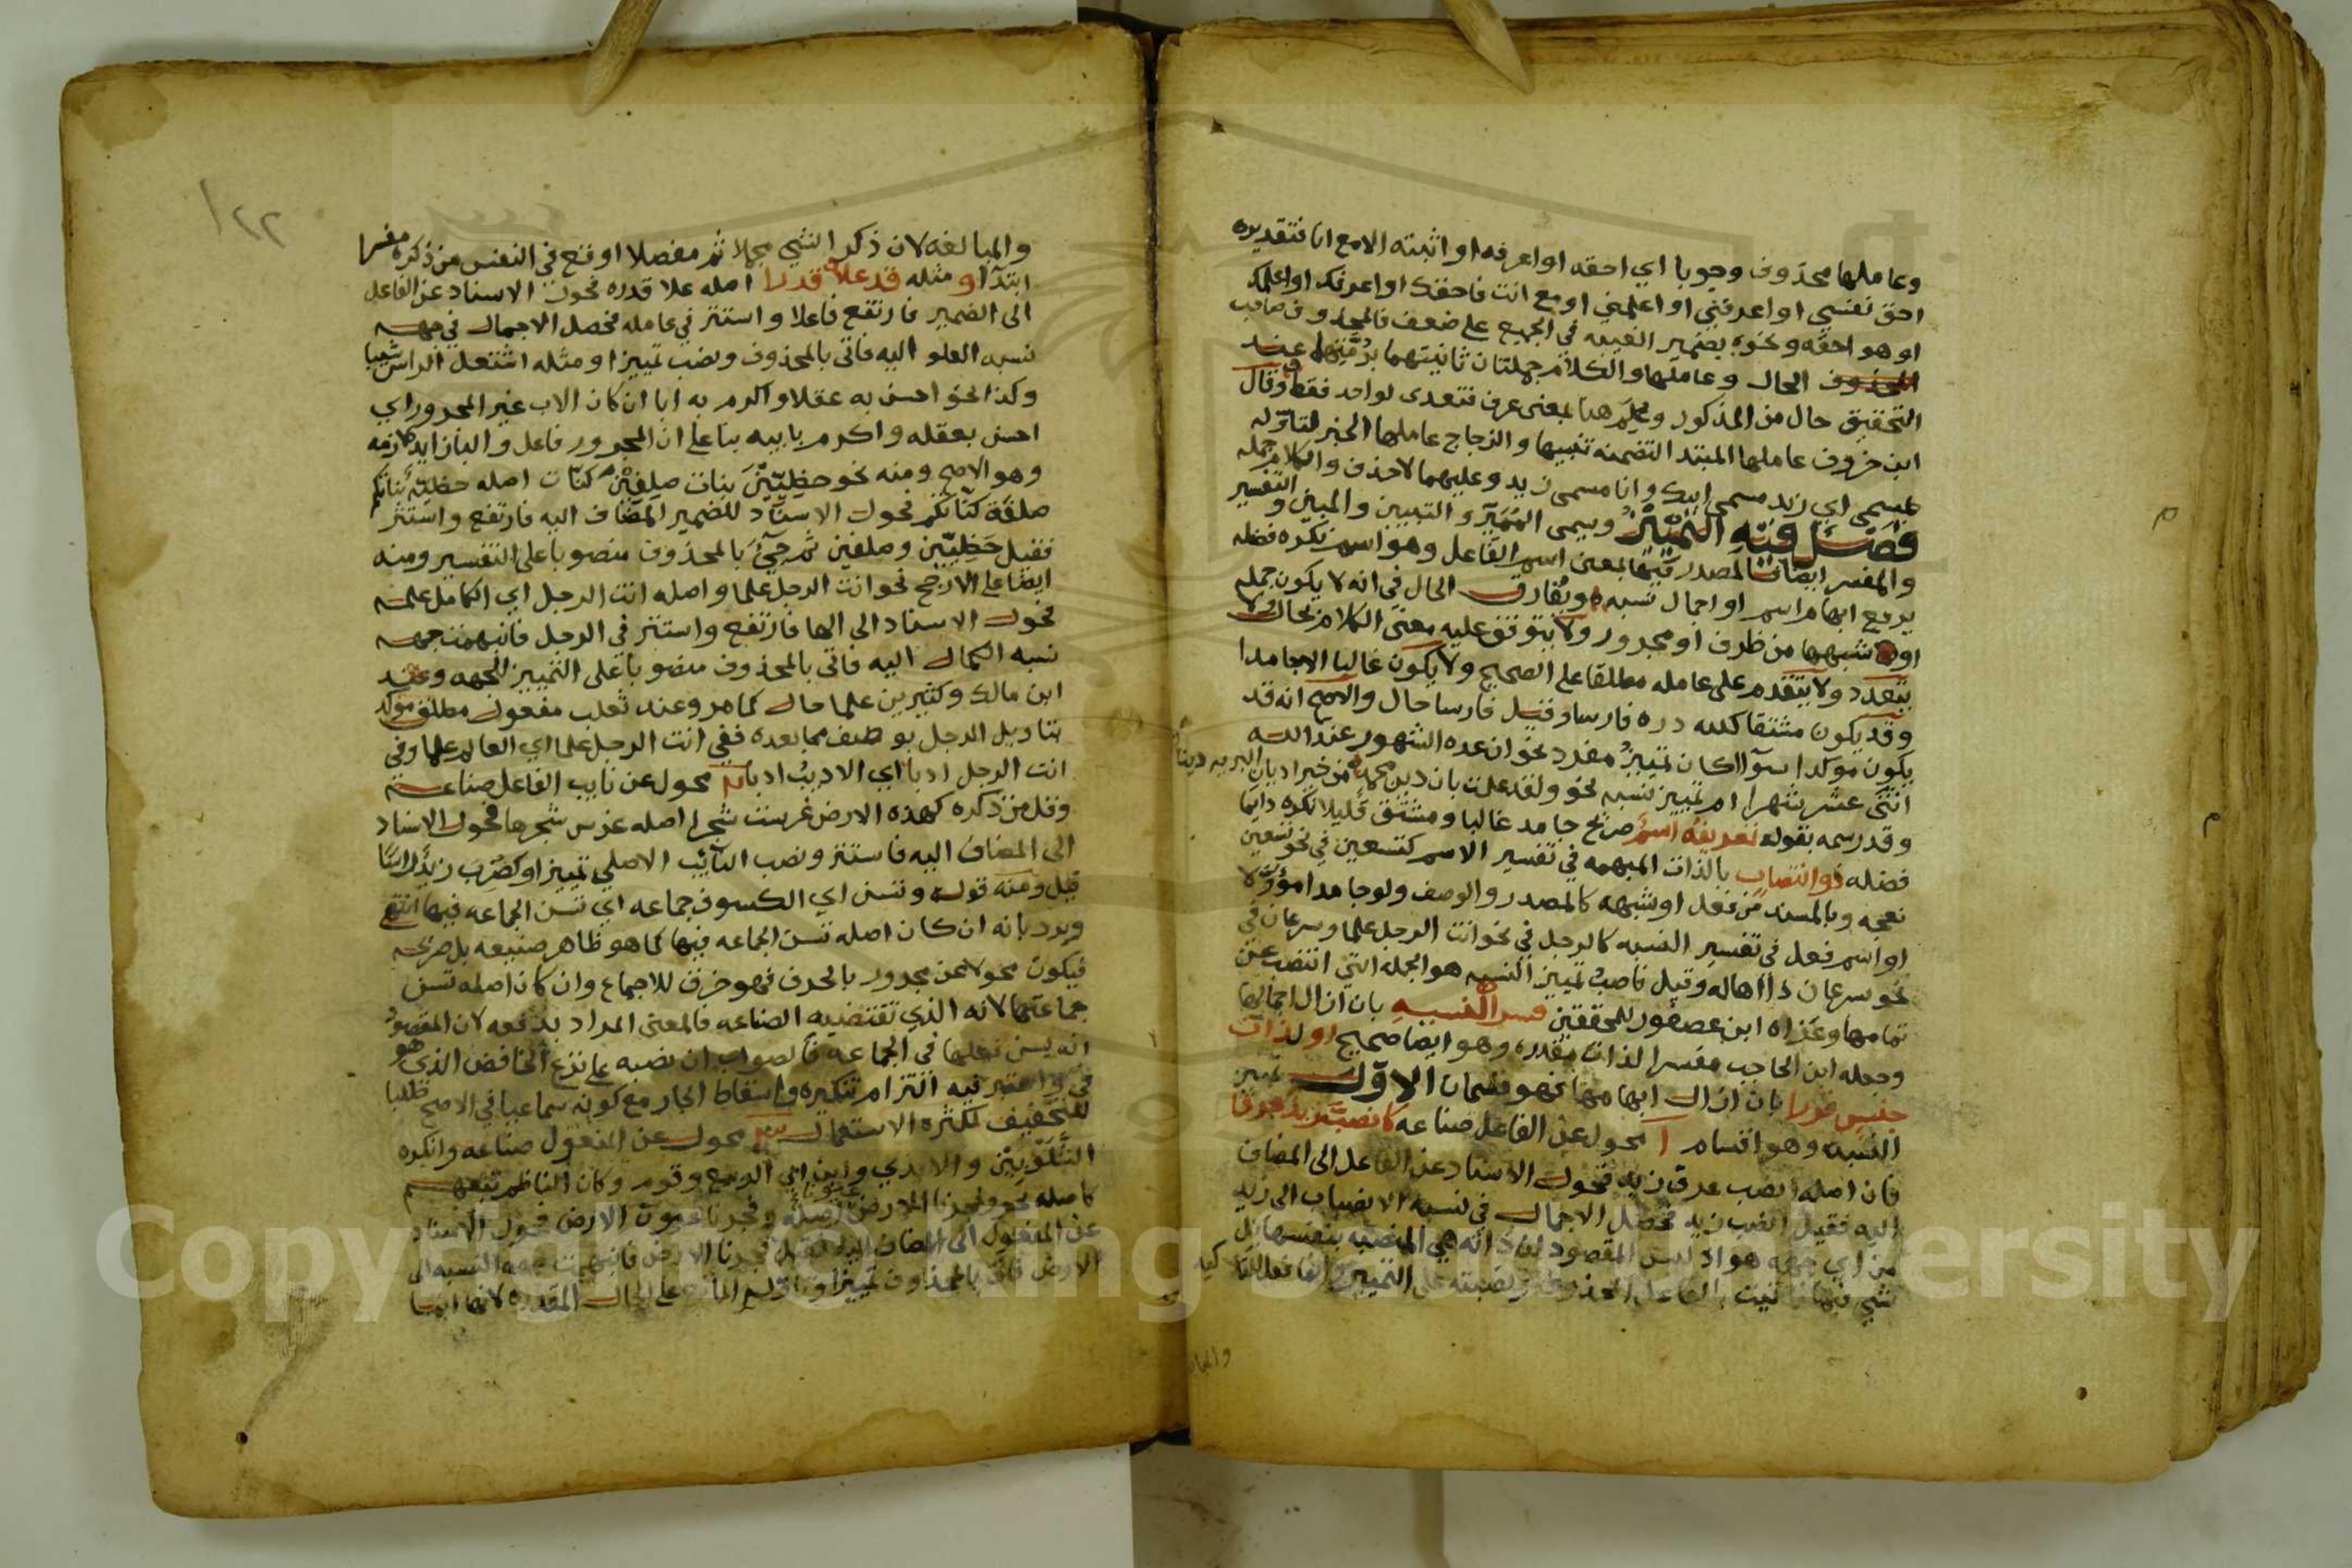 وعاملها محذوف وجوبا اي احقه او اعرفه او اثبته الا مع انا فتقديره
احق نفسي او اعرفني او اعلمني او مع انت فاحقك او اعرفك او اعلمك
او هو احقه ونحوه بضمير الغيبه في الجميع على ضعف فالمحذوف صاحب
الحال وعاملها والكلام جملتان ثانيتهما برمتها عند
التحقيق حال من المذكور وعلم هنا بمعنى عرف فتعدى لواحد فقط وقال
ابن خروف عاملها المبتدا لتضمنه تنبيها والزجاج عاملها الخبر لتاوله
بمسمى اي زيد مسمى ابيك وانا مسمى زيد وعليهما لا حذف والكلام جمله
فصل فيه التمييز ويسمى المميز والتبيين والمبين والتفسير
والمفسر ايضا فالمصدر فيها بمعنى اسم الفاعل وهو اسم نكره فضله
يرفع ابهام اسم او اجمال نسبه ويفارق الحال في انه لا يكون جمله
او شبهها من ظرف او مجرور ولا يتوقف عليه معنى الكلام بحال ولا
يتعدد ولا يتقدم على عامله مطلقا على الصحيح ولا يكون غالبا الا جامدا
وقد يكون مشتقا كلله دره فارسا وقيل فارسا حال والاصح انه قد
يكون موكدا سوآ اكان تمييز مفرد نحو ان عدة الشهور عند الله
اثنى عشر شهرا ام تمييز نسبه نحو ولقد علمت بان دين محمد من خير اديان البريه دينا
وقد رسمه بقوله تعريفه اسم صريح جامد غالبا ومشتق قليلا نكره دايما
فضله ذو انتصاب بالذات المبهمه في تفسير الاسم كتسعين في نحو تسعين
نعجه وبالمسند من فعل او شبهه كالمصدر والوصف ولو جامدا مؤولا
او اسم فعل في تفسير النسبه كالرجل في نحو انت الرجل علما وسرعان في
نحو سرعان ذا اهاله وقيل ناصب تمييز النسبه هو الجمله التي انتصب عن
تمامها وعزاه ابن عصفور للمحققين فسر النسبه بان ازال اجمالها
وجعله ابن الحاجب مفسرا لذات مقدره وهو ايضا صحيح او لذات
جنس قدرا بان ازال ابهامها فهو قسمان الاول تمييز
النسبه وهو اقسام ا محول عن الفاعل صناعه كانصب زيد عرقا
فان اصله انصب عرق زيد فحول الاسناد عن الفاعل الى المضاف
اليه فقيل انصب زيد فحصل الاجمال في نسبه الانصباب الى زيد
من اي جهه هو اذ ليس المقصود ان ذاته هي المنصبه بنفسها بل
والمبالغه لان ذكر الشي مجملا ثم مفصلا اوقع في النفس من ذكره مفسرا
ابتدآ او مثله قد علا قدرا اصله علا قدره فحول الاسناد عن الفاعل
الى الضمير فارتفع فاعلا واستتر في عامله فحصل الاجمال في جهه
نسبه العلو اليه فاتى بالمحذوف ونصب تمييزا ومثله اشتعل الراس شيبا
وكذا نحو احسن به عقلا واكرم به ابا ان كان الاب غير المجرور اي
احسن بعقله واكرم بابيه بنا على ان المجرور فاعل والبا زايده لازمه
وهو الاصح ومنه نحو حظيين بنات صلفين كنات اصله حظية بناتكم
صلفة كناتكم فحول الاسناد للضمير المضاف اليه فارتفع واستتر
فقيل حظيين وصلفين ثم جيء بالمحذوف منصوبا على التفسير ومنه
ايضا على الارجح نحو انت الرجل علما واصله انت الرجل اي الكامل علمه
فحول الاسناد الى الها فارتفع واستتر في الرجل فانبهمت جهه
نسبه الكمال اليه فاتى بالمحذوف منصوبا على التمييز للجهه وعند
ابن مالك وكثيرين علما حال كما مر وعند ثعلب مفعول مطلق موكد
بتاويل الرجل بوصف مما بعده ففي انت الرجل علما اي العالم علما وفي
انت الرجل ادبا اي الاديب ادبا محول عن نايب الفاعل صناعه
وقل من ذكره كهذه الارض غرست شجرا اصله غرس شجرها فحول الاسناد
الى المضاف اليه فاستتر ونصب النآئب الاصلي تمييزا وكضرب زيد راسا
قيل ومنه قوله وتسن اي الكسوف جماعه اي تسن الجماعه فيها انتهى
ويرد بانه ان كان اصله تسن الجماعه فيها كما هو ظاهر صنيعه بل صريحه
فيكون محولا عن مجرور بالحرف فهو خرق للاجماع وان كان اصله تسن
جماعتها لانه الذي تقتضيه الصناعه فالمعنى المراد يدفعه لان المقصود
انه يسن فعلها في الجماعه فالصواب ان نصبه على نزع الخافض الذي هو
في واعتبر فيه التزام تنكيره واسقاط الجار مع كونه سماعيا في الاصح طلبا
للتخفيف لكثره الاستعمال محول عن المفعول صناعه وانكره
الشلوبين والابدي وابن ابي الربيع وقوم وكان الناظم تبعهم
كاصله نحو وفجرنا الارض عيونا اصله وفجرنا عيون الارض فحول الاسناد
عن المفعول الى المضاف اليه فقيل فجرنا الارض فانبهمت جهه النسبه الى
الارض فاتى بالمحذوف تمييزا
١٢٢